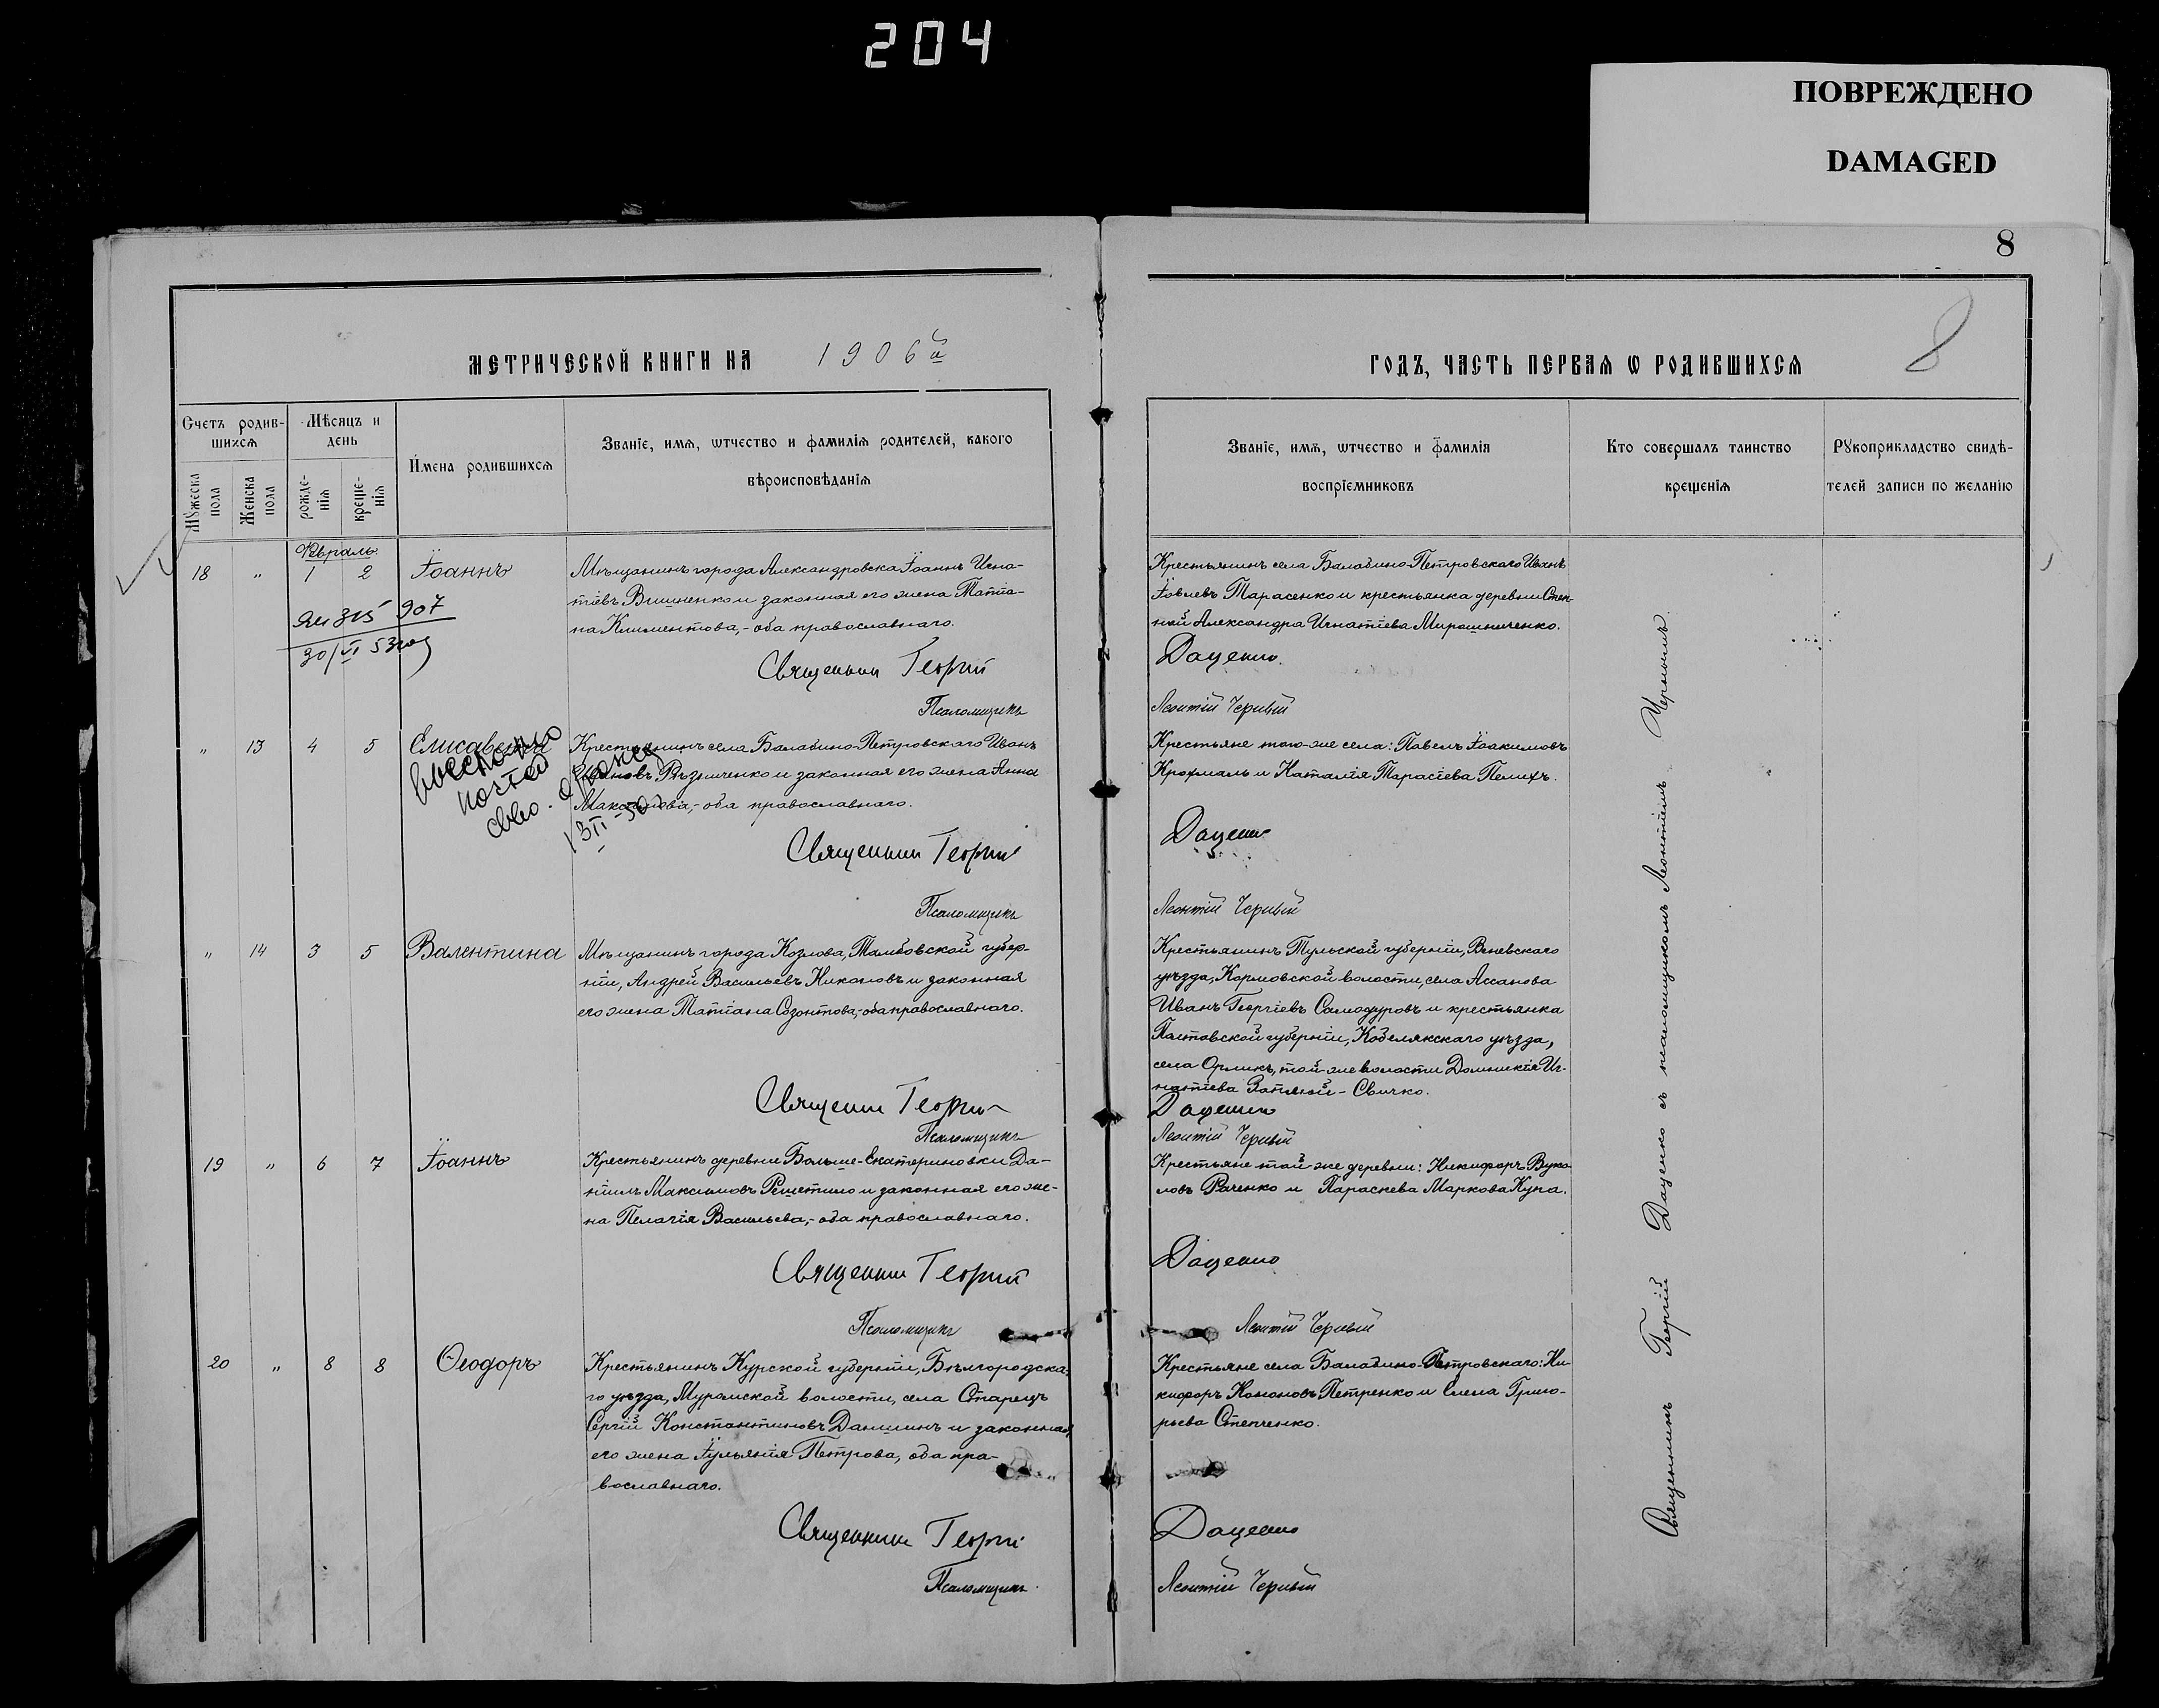 204
ПОВРЕЖДЕНО
DAMAGED
8
8
МЕТРИЧЕСКОЙ КНИГИ НА 1906й
ГОДЪ, ЧАСТЬ ПЕРВАЯ Ѡ РОДИВШИХСЯ
Счетъ родив-
шихся
Мужеска пола
Женска пола
Мѣсяцъ и
день
рожде-
нія
креще-
нія
Имена родившихся
Званіе, имя, ѡтчество и фамилія родителей, какого
вѣроисповѣданія
Званіе, имя, ѡтчество и фамилія
воспріемниковъ
Кто совершалъ таинство
крещенія
Рукоприкладство свидѣ-
телей записи по желанію
Февраль
18 " 1 2 Іоаннъ
Мѣщанинъ города Александровска Іоаннъ Игна-
тіевъ Вишненко и законная его жена Татіа-
на Климентова,- оба православнаго.
Священник Георгій
Псаломщикъ
Крестьянинъ села Балабино-Петровскаго Иванъ
Іовлевъ Тарасенко и крестьянка деревни Степ-
ной Александра Игнатіева Мирошниченко.
Даценко.
Леонтій Черный
315 907
30/VI 53
" 13 4 5 Елисавета
Крестьянинъ села Балабино-Петровскаго Иванъ
и законная его жена Анна
Максимова,- оба православнаго.
Священник Георгій
Псаломщикъ
Крестьяне того-же села: Павелъ Іоакимовъ
Крохмаль и Наталія Тарасіева Пелихъ.
Даценко
Леонтій Черный
" 14 3 5 Валентина
Мѣщанинъ города Козлова, Тамбовской губер-
ніи, Андрей Васильевъ Никоновъ и законная
его жена Татіана Созонтова,- оба православнаго.
Священник Георгій
Псаломщикъ
Крестьянинъ Тульской губерніи, Веневскаго
уѣзда, волости, села
Иванъ Георгіевъ Самодуровъ и крестьянка
Полтавской губерніи, Кобелякскаго уѣзда,
села Орликъ, той-же волости Домникія Иг-
натіева Свичко.
Даценко
Леонтій Черный
19 " 6 7 Іоаннъ
Крестьянинъ деревни Больше-Екатериновки Да-
ніилъ Максимовъ Решетило и законная его же-
на Пелагія Васильева,- оба православнаго.
Священник Георгій
Псаломщикъ
Крестьяне той-же деревни: Никифоръ Вуко-
ловъ Раченко и Параскева Маркова Купа.
Даценко
Леонтій Черный
20 " 8 8 Ѳеодоръ
Крестьянинъ Курской губерніи, Бѣлгородска-
го уѣзда, Муромской волости, села Старецъ
Сергій Константиновъ Данилинъ и законная
его жена Іуліанія Петрова, оба пра-
вославнаго.
Священник Георгій
Псаломщикъ
Крестьяне села Балабино-Петровскаго: Ни-
кифоръ Кононовъ Петренко и Елена Григо-
рьева Степченко.
Даценко
Леонтій Черный
Священникъ Георгій Даценко съ псаломщикомъ Леонтіемъ Чернымъ